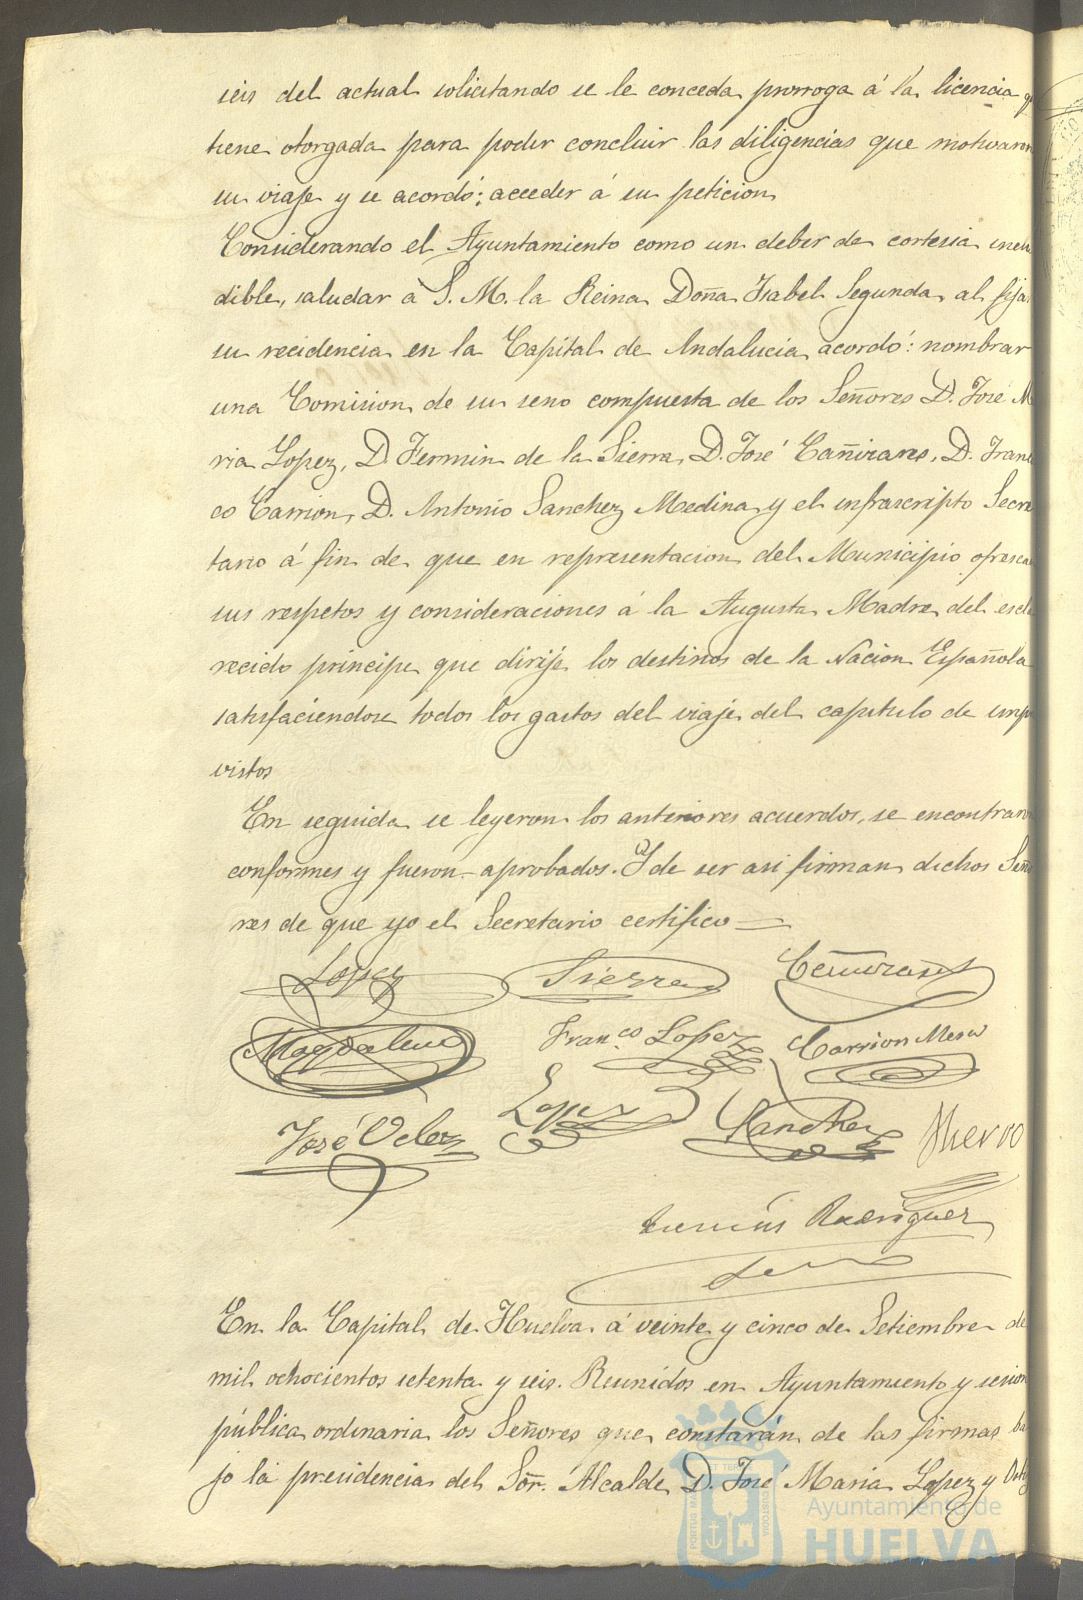 seis del actual solicitando se le conceda prorroga á la licencia q
tiene otorgada para poder concluir las diligencias que motivaron
su viaje y se acordó: acceder á su peticion
Considerando el Ayuntamiento como un deber de cortesia inelu
dible, saludar á S. M. la Reina Doña Isabel Segunda, al fijar
su recidencia en la Capital de Andalucia, acordó: nombrar
una Comision de su seno compuesta de los Señores D. José M
ria Lopez, D. Fermin de la Sierra, D. José Cañizares, D. Franc
co Carrion, D. Antonio Sanchez Medina y el infrascripto Secre
tario á fin de que en representacion del Municipio ofrescan
sus respetos y consideraciones á la Augusta Madre del escla
recido principe que dirije los destinos de la Nacion Española
satisfaciendose todos los gastos del viaje del capitulo de impre
vistos
En seguida se leyeron los anteriores acuerdos, se encontraron
conformes y fueron aprobados. Y de ser asi firman dichos Seño
res de que yo el Secretario certifico
Lopez Sierra Cañizares
Magdalena Fran.co Lopez Carrion Mesa
José Velez Lopez Sanchez
Rodriguez
En la Capital de Huelva á veinte y cinco de Setiembre de
mil ochocientos setenta y seis. Reunidos en Ayuntamiento y sesion
pública ordinaria los Señores que constarán de las firmas ba
jo la presidencia del Sor. Alcalde D. José Maria Lopez y
PORTUS MARIS ET TERRAE CUSTODIA
Ayuntamiento de
HUELVA